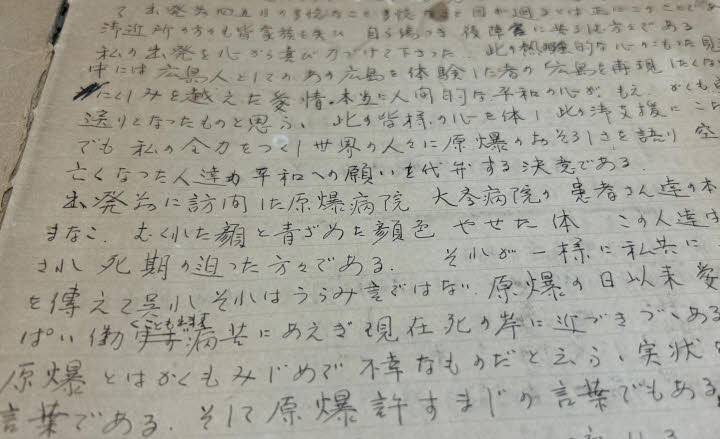 て出発前四五日の多忙なこと多忙
御近所の方々も皆家族を失ひ 自ら傷つき 後障害に苦しむ方々である
私の出発を心から喜び力づけて下さった 此の熱狂的な心のこもった見
中には広島人としての あの広島を体験した者の 広島を再現したくな
にくしみを越えた愛情・本当に人間的な平和の心が もえ かくも
送りとなったものと思ふ、 此の皆様の心を体し 此の御支援にこた
でも 私の全力をつくし世界の人々に原爆のおそろしさを語り 空
亡くなった人達の平和への願いを代弁する決意である
出発前に訪問した原爆病院 大彦病院の 患者さん達の本
まなこ、むくれた顔と青ざめた顔色 やせた体 この人達は
され 死期の迫った方々である. それが一様に私共に
を傳えて呉れ それはうらみ言ではない. 原爆の日以来
ぱい働くことも出来ず病苦にあえぎ現在死の岸に近づきつゝある
原爆とはかくもみじめで 不幸なものだと云ふ、実状を
言葉である. そして原爆許すまじの言葉でもある